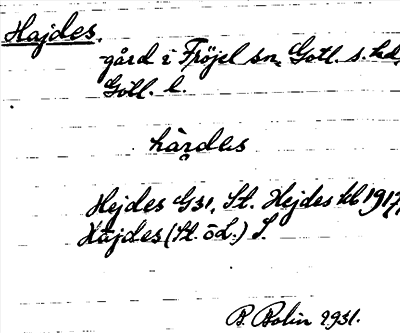 Hajdes.
gård i Fröjel sn, Gotl. s. hd,
Gotl. l.
Hejdes G31, St. Hejdes kk 1917,
Hajdes (St. ö L.) S.
B. Bolin 1931.